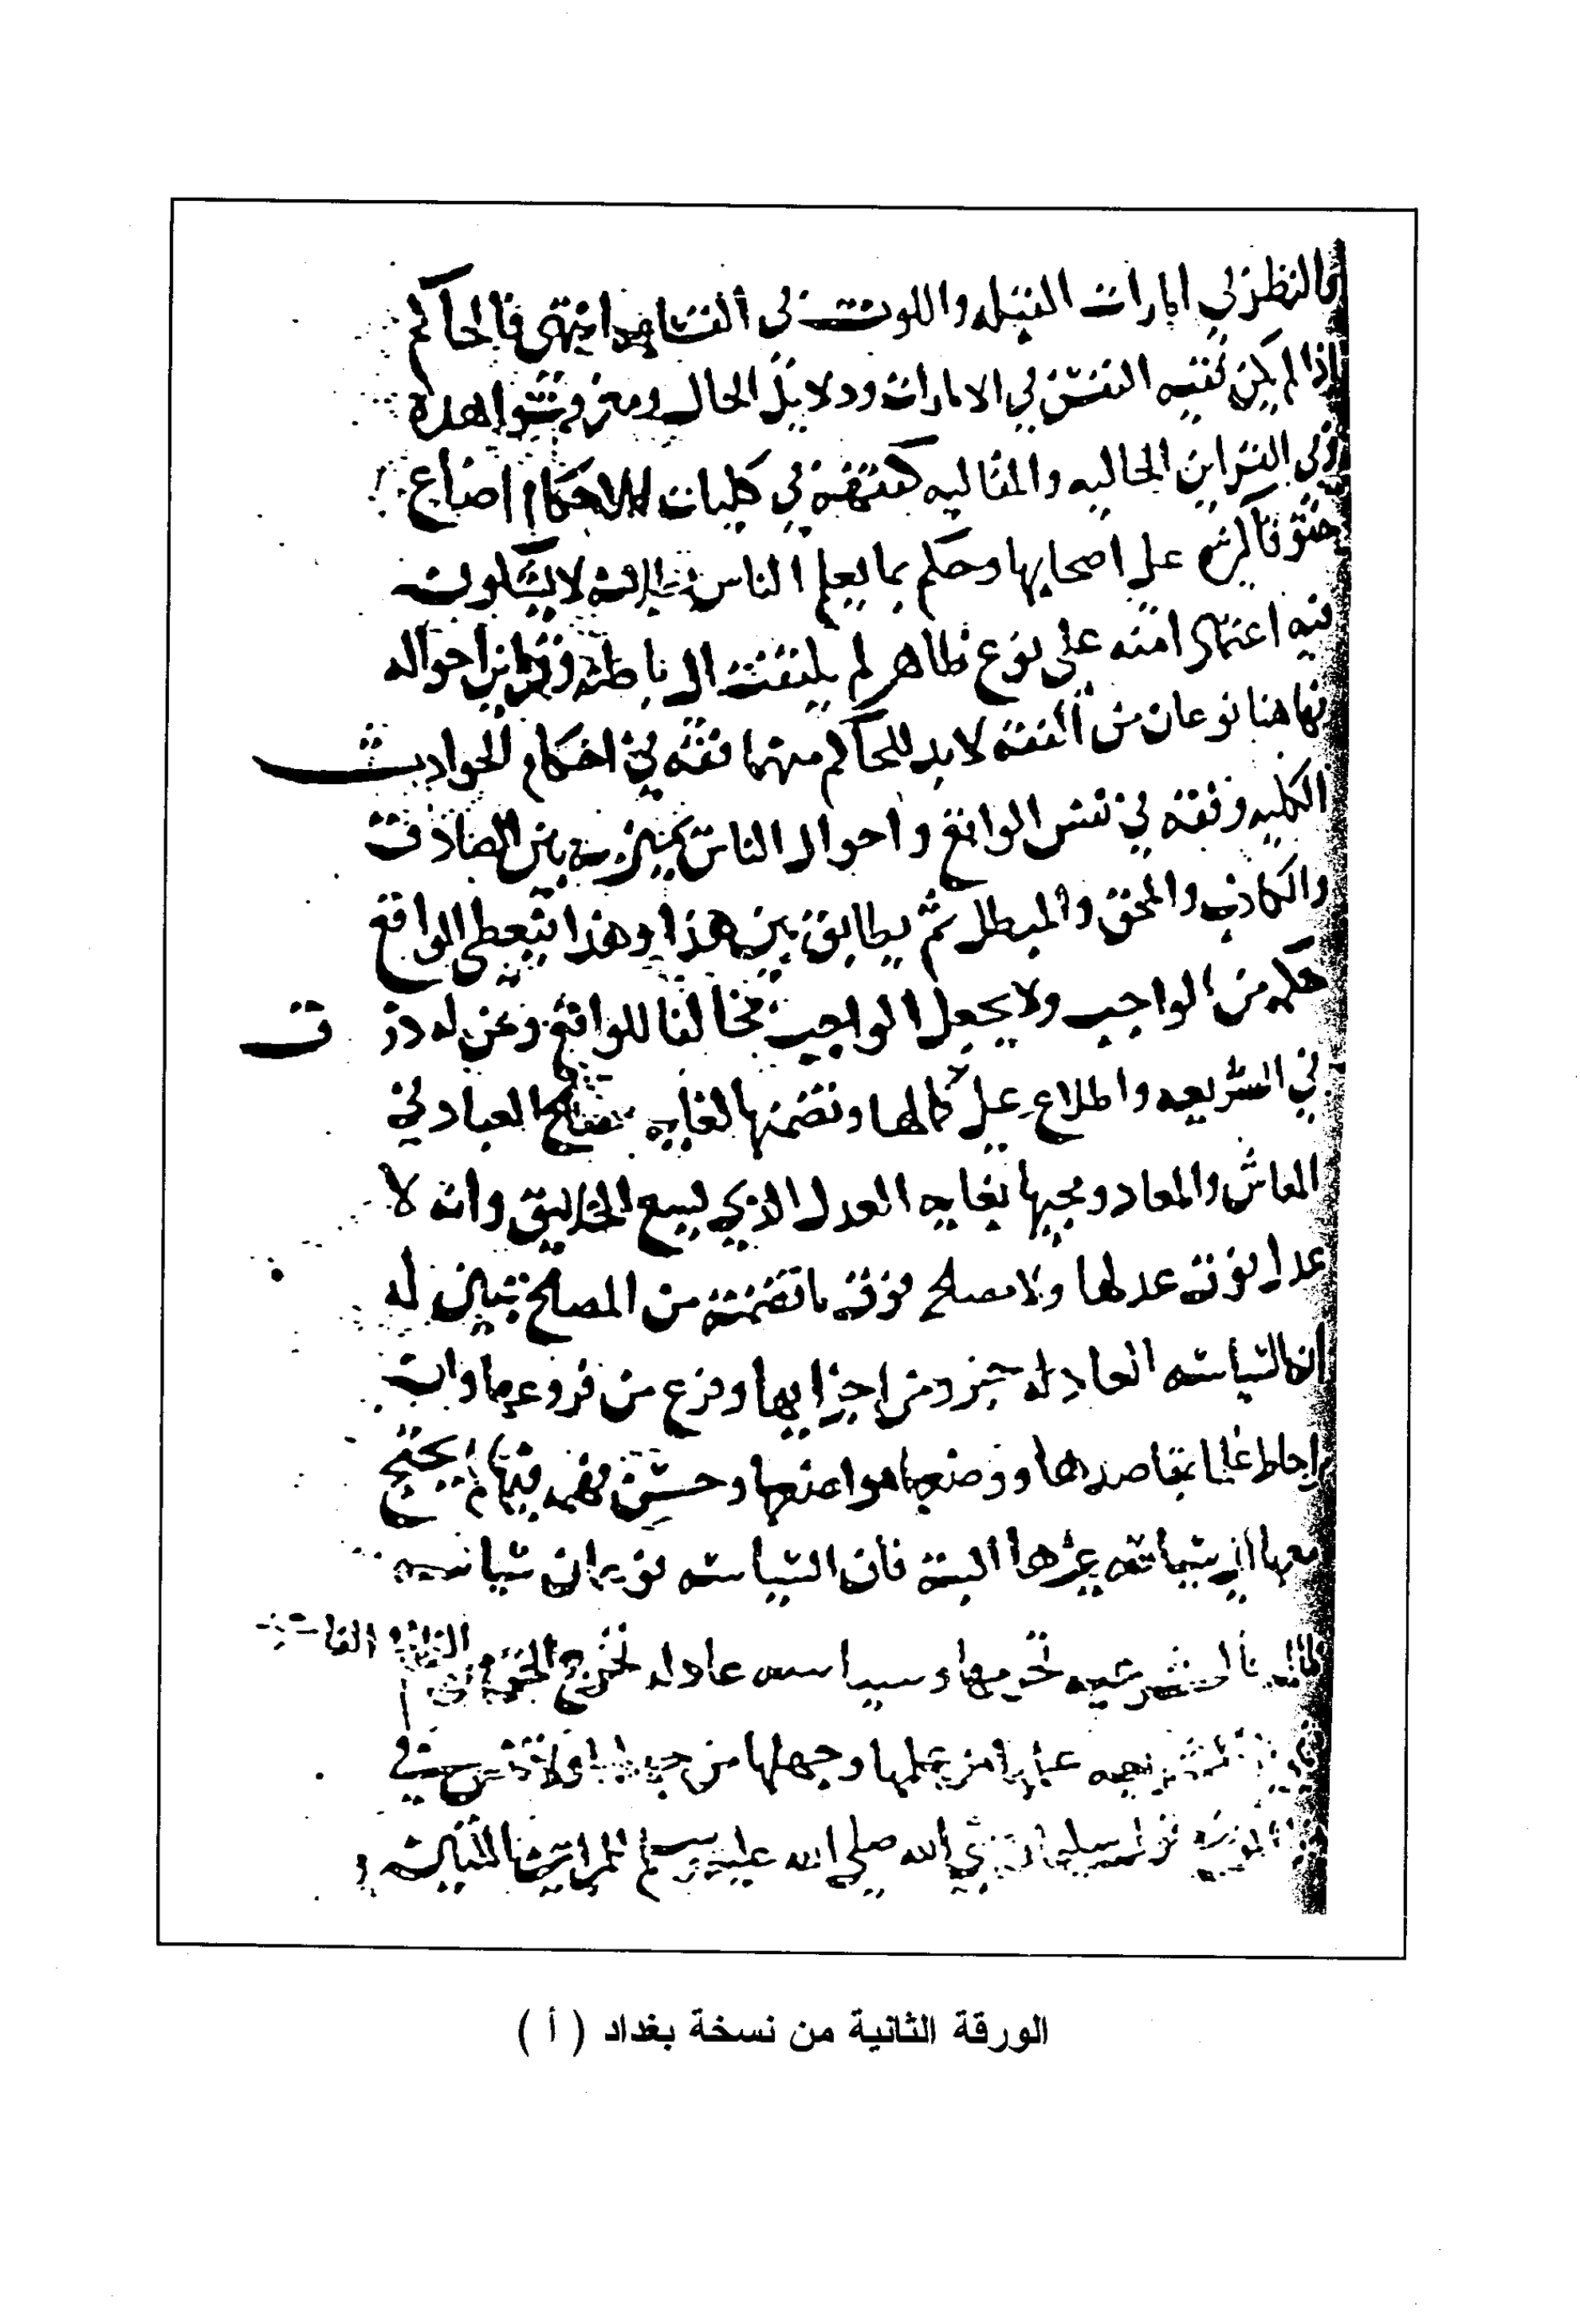 والنظر في امارات القبله واللوث في القسامه انتهى فالحاكم
اذا لم يكن فقيه النفس في الامارات ودلايل الحال ومعرفة شواهده
وفي القراين الحاليه والمقاليه كفقهه في كليات الاحكام اضاع
حقوقا كثيره على اصحابها وحكم بما يعلم الناس بطلانه لا يشكون
فيه اعتمادا منه على نوع ظاهر لم يلتفت الى باطنه وقراين احواله
فهاهنا نوعان من الفقه لا بد للحاكم منهما فقه في احكام الحوادث
الكليه وفقه في نفس الواقع واحوال الناس يميز به بين الصادق
والكاذب والمحق والمبطل ثم يطابق بين هذا وهذا فيعطى الواقع
حكمه من الواجب ولا يجعل الواجب مخالفا للواقع ومن له ذوق
في الشريعه واطلاع على كمالها وتضمنها لغايه مصالح العباد في
المعاش والمعاد ومجيها بغايه العدل الذي يسع الخلايق وانه لا
عدل فوق عدلها ولا مصلحه فوق ما تضمنته من المصالح تبين له
ان السياسه العادله جزو من اجزايها وفرع من فروعها وان من
احاط علما بمقاصدها ووضعها مواضعها وحسن فهمه فيها لم يحتج
معها الى سياسه غيرها البته فان السياسه نوعان سياسه
ظالمه فالشريعه تحرمها وسياسه عادله تخرج الحق من الظالم الفاجر
فهي من الشريعه علمها من علمها وجهلها من جهلها ولا تنس في
هذا الموضع قول سليمان نبي الله صلى الله عليه وسلم للمراتين اللتين
الورقة الثانية من نسخة بغداد ( أ )